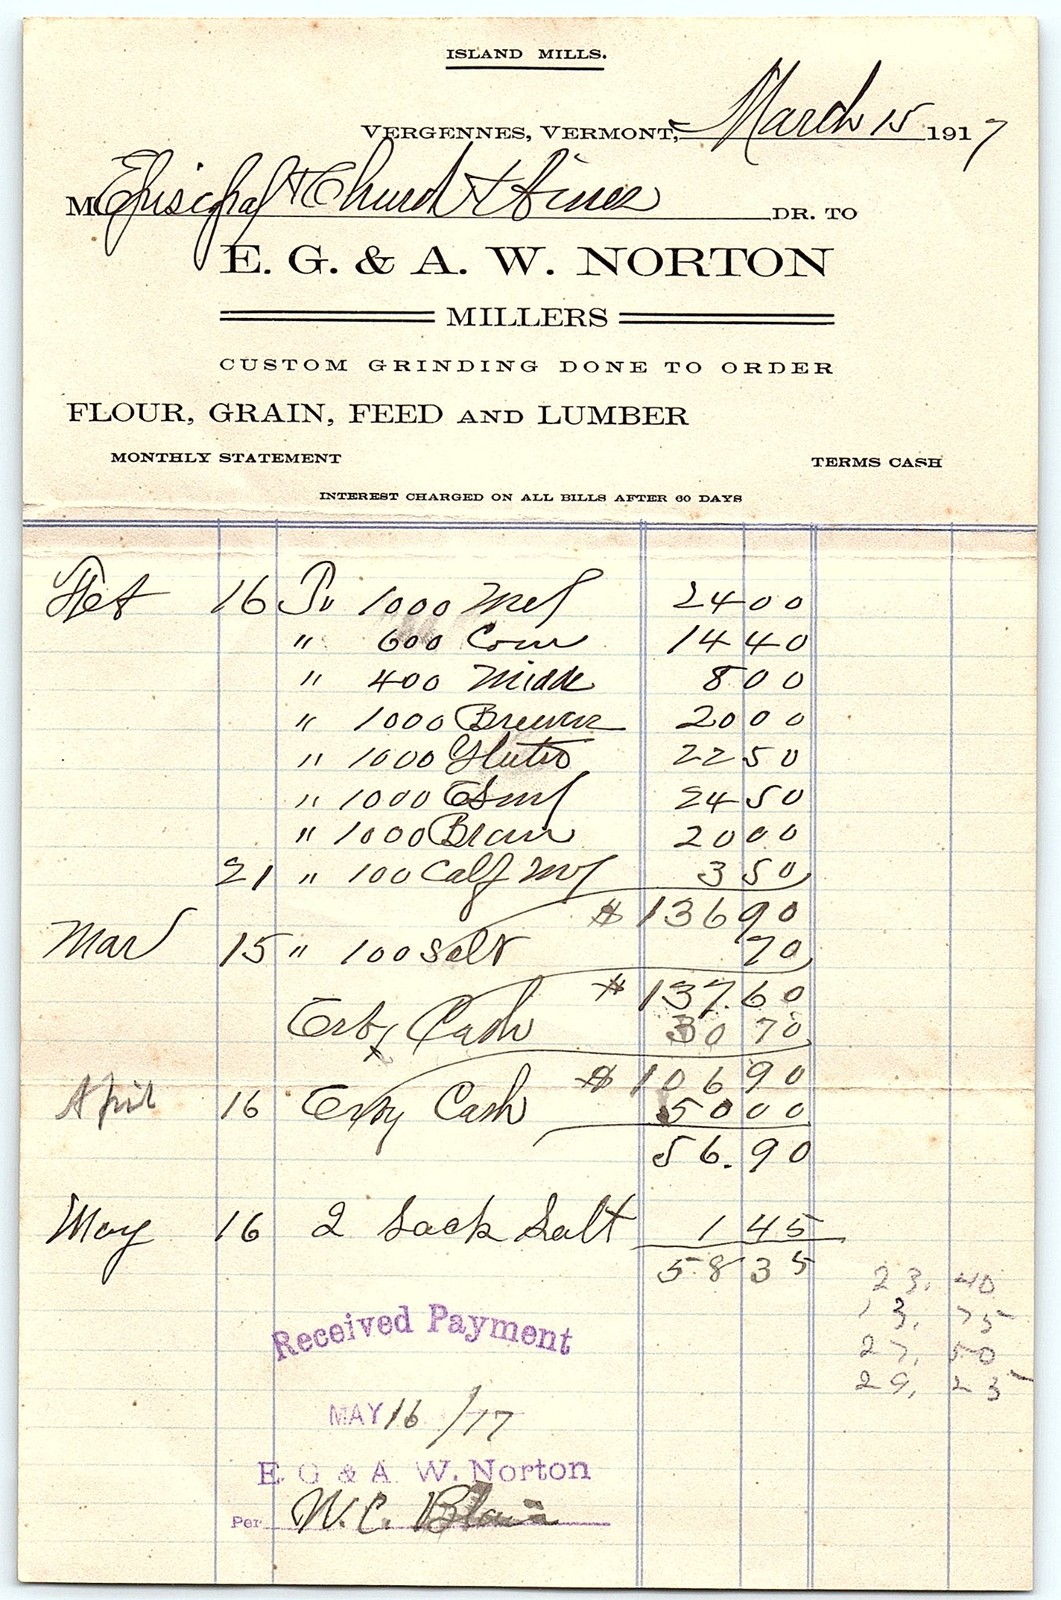 ISLAND MILLS.
VERGENNES, VERMONT, March 15 1917
M Episcopal Church & Hines DR. TO
E. G. & A. W. NORTON
MILLERS
CUSTOM GRINDING DONE TO ORDER
FLOUR, GRAIN, FEED AND LUMBER
MONTHLY STATEMENT TERMS CASH
INTEREST CHARGED ON ALL BILLS AFTER 60 DAYS
16 1000 24 00
" 600 Corn 14 40
" 400 Midds 8 00
" 1000 Brewers 20 00
" 1000 Gluten 22 50
" 1000 24 50
" 1000 Bran 20 00
21 " 100 Calf Ml 3 50
$ 136 90
Mar 15 " 100 Salt 70
$ 137.60
Cr by Cash 30 70
$ 106 90
April 16 Cr by Cash 50 00
56.90
May 16 2 Sack Salt 1 45
58 35
23. 40
13. 75
27. 50
29. 25
Received Payment
MAY 16 /17
E G & A W. Norton
Per W. C. Blair